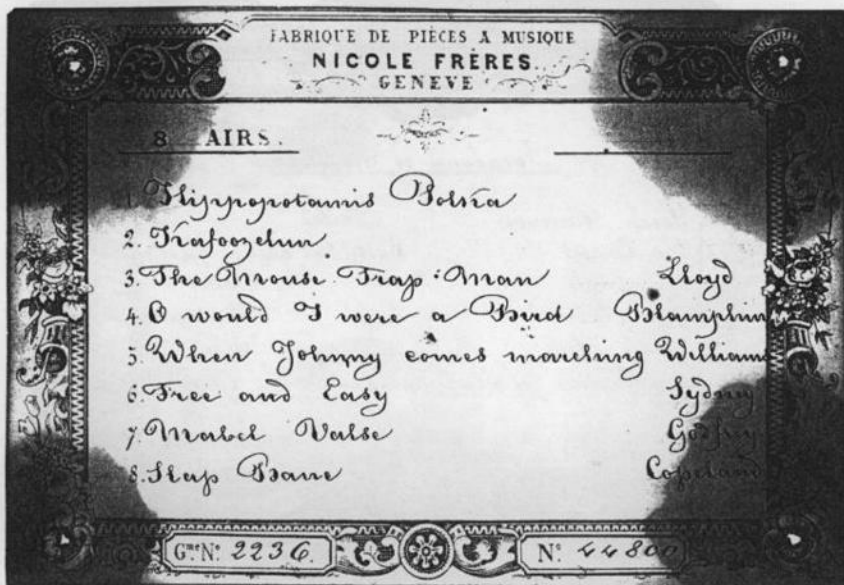 FABRIQUE DE PIÈCES A MUSIQUE
NICOLE FRÈRES.
GENEVE
8 AIRS.
1. Hippopotamis Polka
2. Kafoozelun
3. The Mouse Trap Man Lloyd
4. O would I were a Bird Blamphin
5. When Johnny comes marching William
6. Free and Easy Sydney
7. Mabel Valse Godfrey
8. Slap Bane Copeland
Gme No. 2236. No. 44800